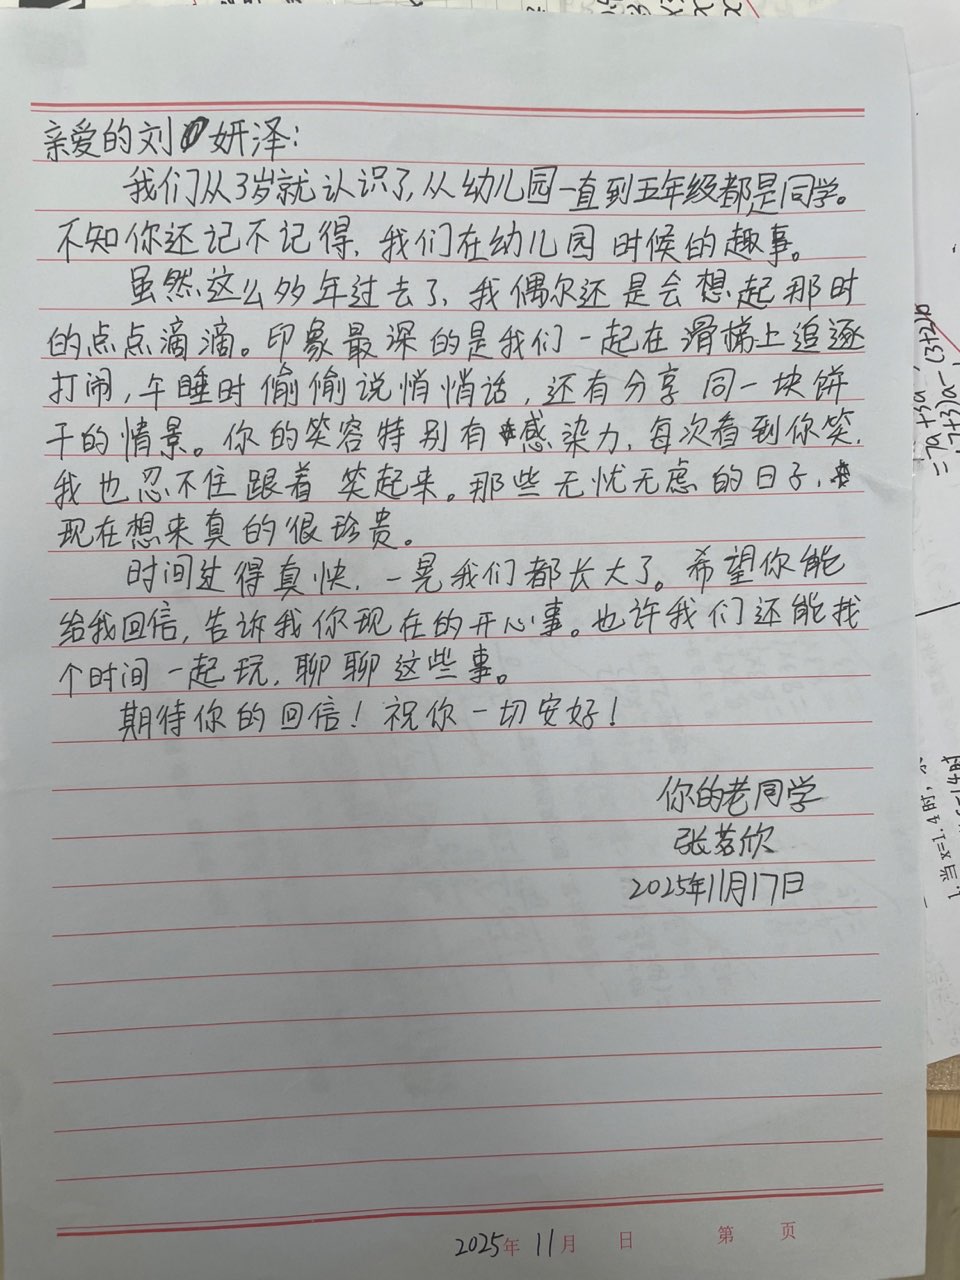 亲爱的刘妍泽：
我们从3岁就认识了，从幼儿园一直到五年级都是同学。
不知你还记不记得，我们在幼儿园时候的趣事。
虽然这么多年过去了，我偶尔还是会想起那时
的点点滴滴。印象最深的是我们一起在滑梯上追逐
打闹，午睡时偷偷说悄悄话，还有分享同一块饼
干的情景。你的笑容特别有感染力，每次看到你笑，
我也忍不住跟着笑起来。那些无忧无虑的日子，
现在想来真的很珍贵。
时间过得真快，一晃我们都长大了。希望你能
给我回信，告诉我你现在的开心事。也许我们还能找
个时间一起玩，聊聊这些事。
期待你的回信！祝你一切安好！
你的老同学
张若欣
2025年11月17日
2025年11月 日 第 页
1.当x=1.4时，